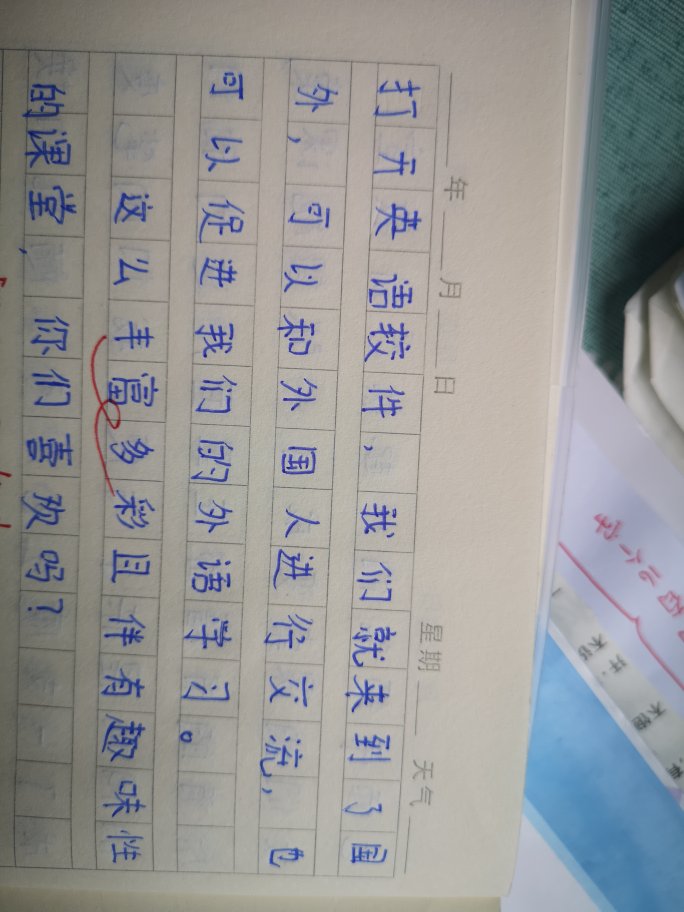 年 月 日 星期 天气
打开英语较件，我们就来到了国
外，可以和外国人进行交流，也
可以促进我们的外语学习。
这么丰富多彩且伴有趣味性
的课堂，你们喜欢吗？